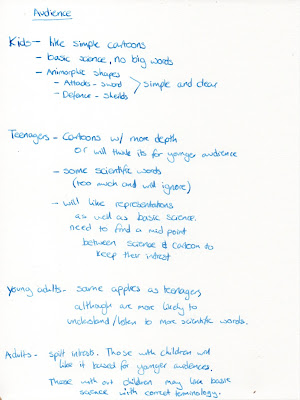 Audience
Kids - like simple cartoons
- basic science, no big words
- Animorphic shapes
- Attacks - sword
- Defence - shields
simple and clear
Teenagers - Cartoons w/ more depth
or will think its for younger audience
- some scientific words
(too much and will ignore)
- will like representations
as well as basic science.
need to find a mid point
between science & cartoon to
keep their intrest
Young adults - same applies as teenagers
although are more likely to
understand/listen to more scientific words.
Adults - split intrests. Those with children will
like it based for younger audiences.
Those with out children may like basic
science with correct terminology.